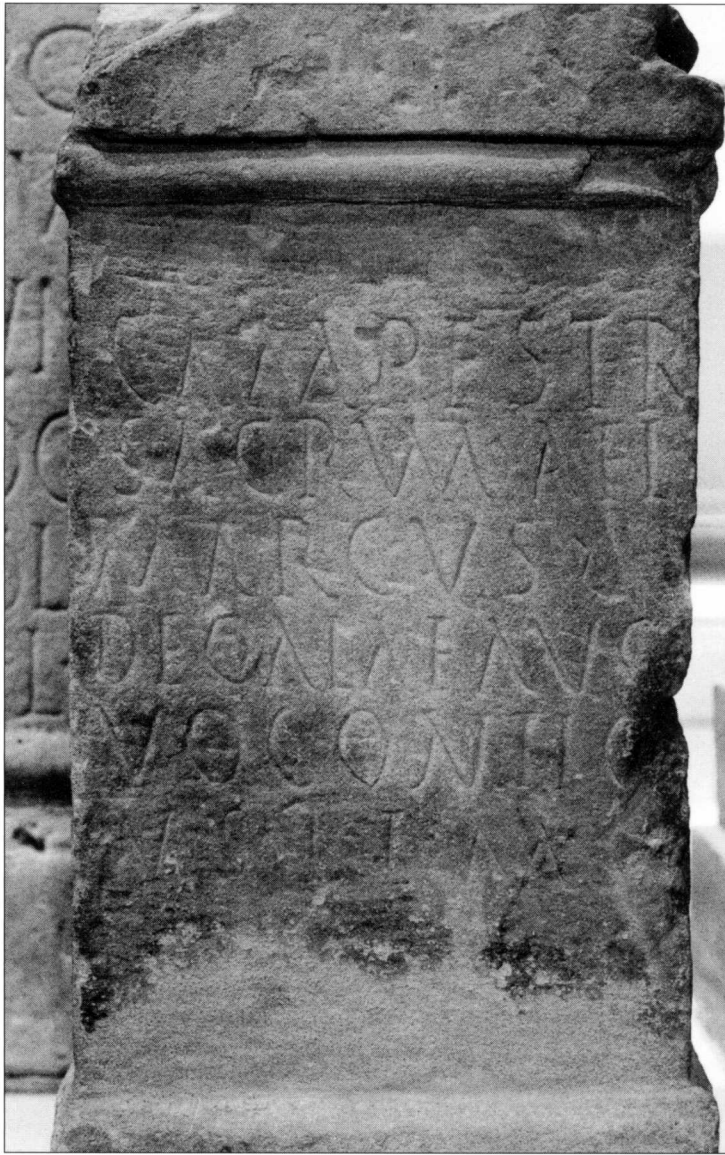 CAMPESTR
SACRVM AEL
MARCVS
DEC ALAE AVG
VOCONTIO
V S L L M